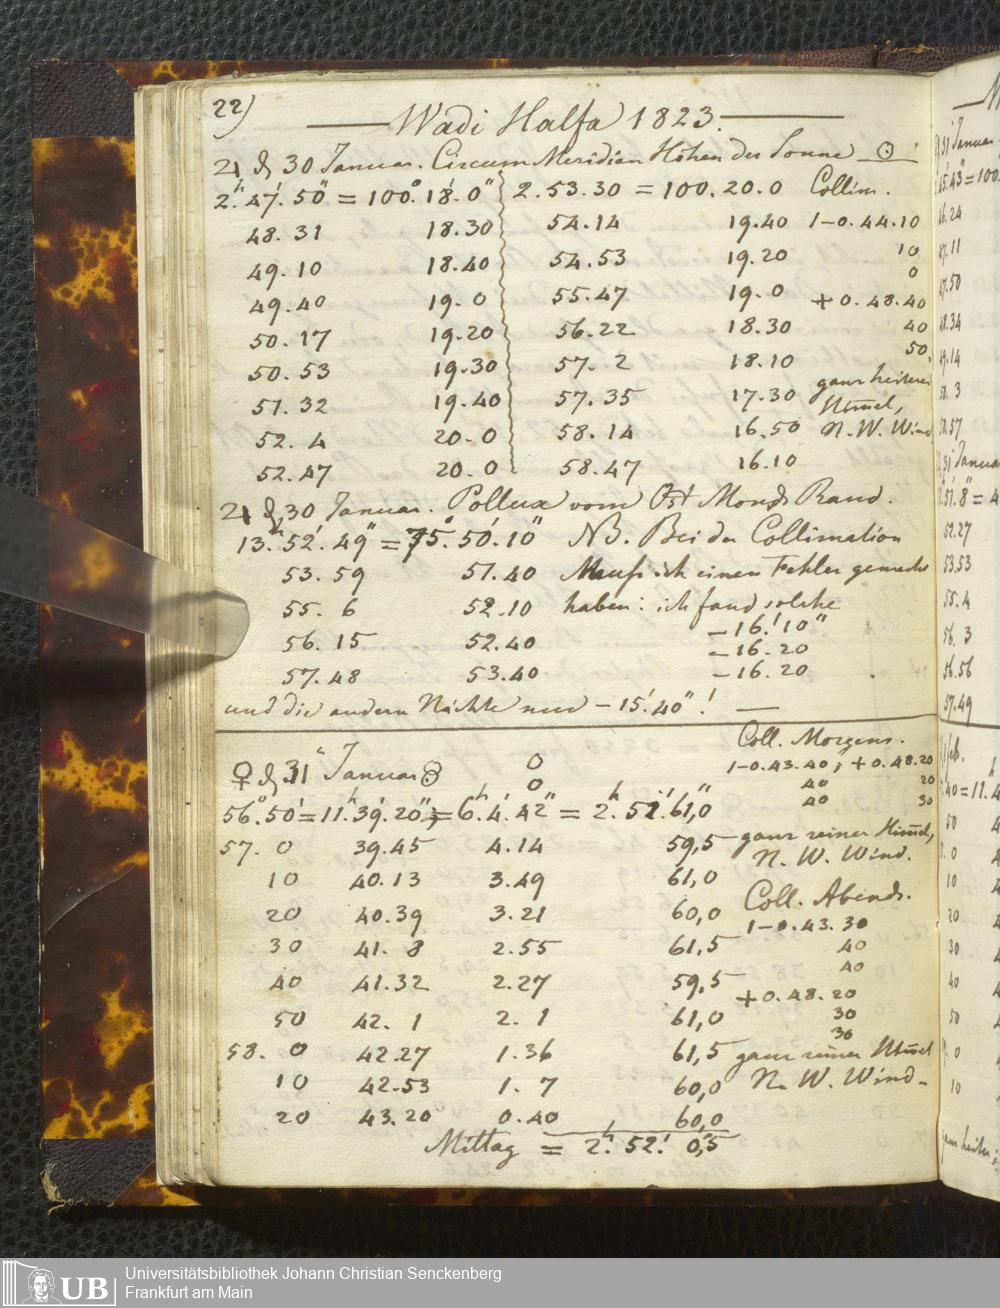 22)
Wadi Halfa 1823.
♃ d 30 Januar. Circum Meridian Höhen der Sonne ☉
2h. 47'. 50" = 100°. 18'. 0" 2. 53. 30 = 100. 20. 0 Collim.
48. 31 18. 30 54. 14 19. 40 1-0. 44. 10
49. 10 18. 40 54. 53 19. 20 10
0
49. 40 19. 0 55. 47 19. 0 +0. 48. 40
50. 17 19. 20 56. 22 18. 30 40
50. 53 19. 30 57. 2 18. 10 50,
51. 32 19. 40 57. 35 17. 30 ganz heiterer
52. 4 20. 0 58. 14 16. 50 Him̅el,
N. W. Wind
52. 47 20. 0 58. 47 16. 10
♃ d 30 Januar. Pollux vom Ost Monds Rand.
13h. 52'. 49" = 75°. 50'. 10" NB. Bei der Collimation
53. 59 51. 40 Muss ich einen Fehler gemacht
55. 6 52. 10 haben: ich fand solche
-16.'10"
56. 15 52. 40 -16. 20
57. 48 53. 40 -16. 20
und die andern Nächte nur -15'. 40"! —
Coll. Morgens.
♀ d 31 Januar 1-0. 43. 40; +0. 48. 20
40 20
40 30
56°. 50' = 11h. 39'. 20"; = 6h. 4'. 42" = 2h. 51'. 61",0
57. 0 39. 45 4. 14 59,5 ganz reiner Him̅el,
N. W. Wind.
10 40. 13 3. 49 61,0
20 40. 39 3. 21 60,0 Coll. Abends.
1-0. 43. 30
30 41. 8 2. 55 61,5 40
40 41. 32 2. 27 59,5 40
+0. 48. 20
50 42. 1 2. 1 61,0 30
30
58. 0 42. 27 1. 36 61,5 ganz reiner Him̅el
10 42. 53 1. 7 60,0 N. W. Wind
20 43. 20 0. 40 60,0
Mittag = 2h. 52'. 0",5
46. 24
47. 11
47. 50
48. 34
49. 14
50. 3
50. 57
52. 27
53. 53
55. 4
56. 3
56. 56
57. 49
UB
Universitätsbibliothek Johann Christian Senckenberg
Frankfurt am Main